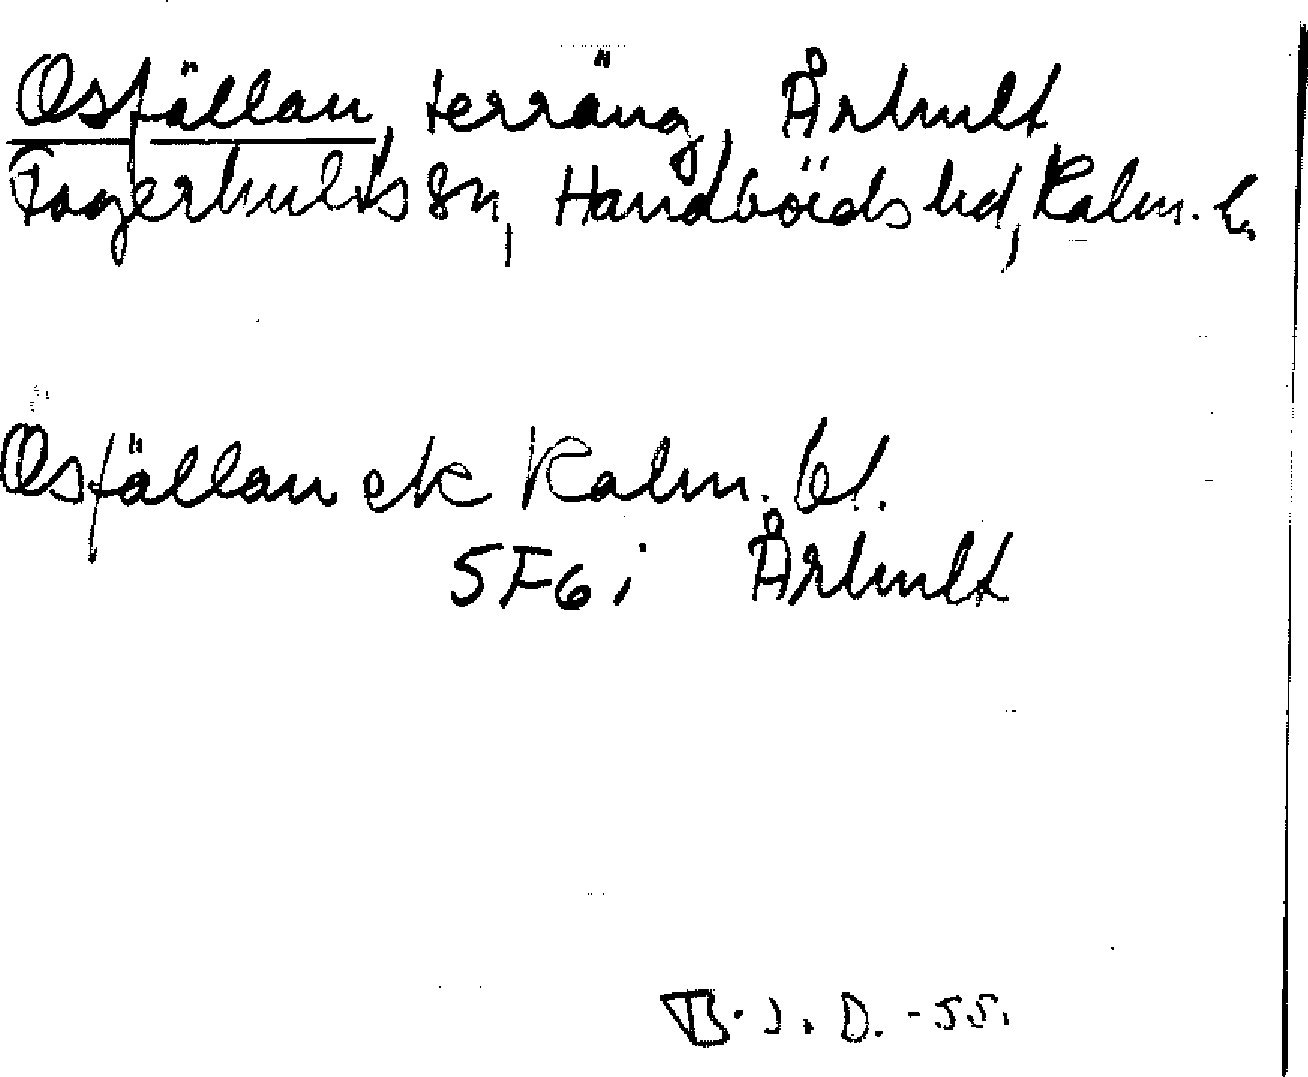 Osfällan, terräng, Århult
Fagerhults sn, Handbörds hd, Kalm. l.
Osfällan ek Kalm. bl.
5F6i Århult
B.J.D. -55.